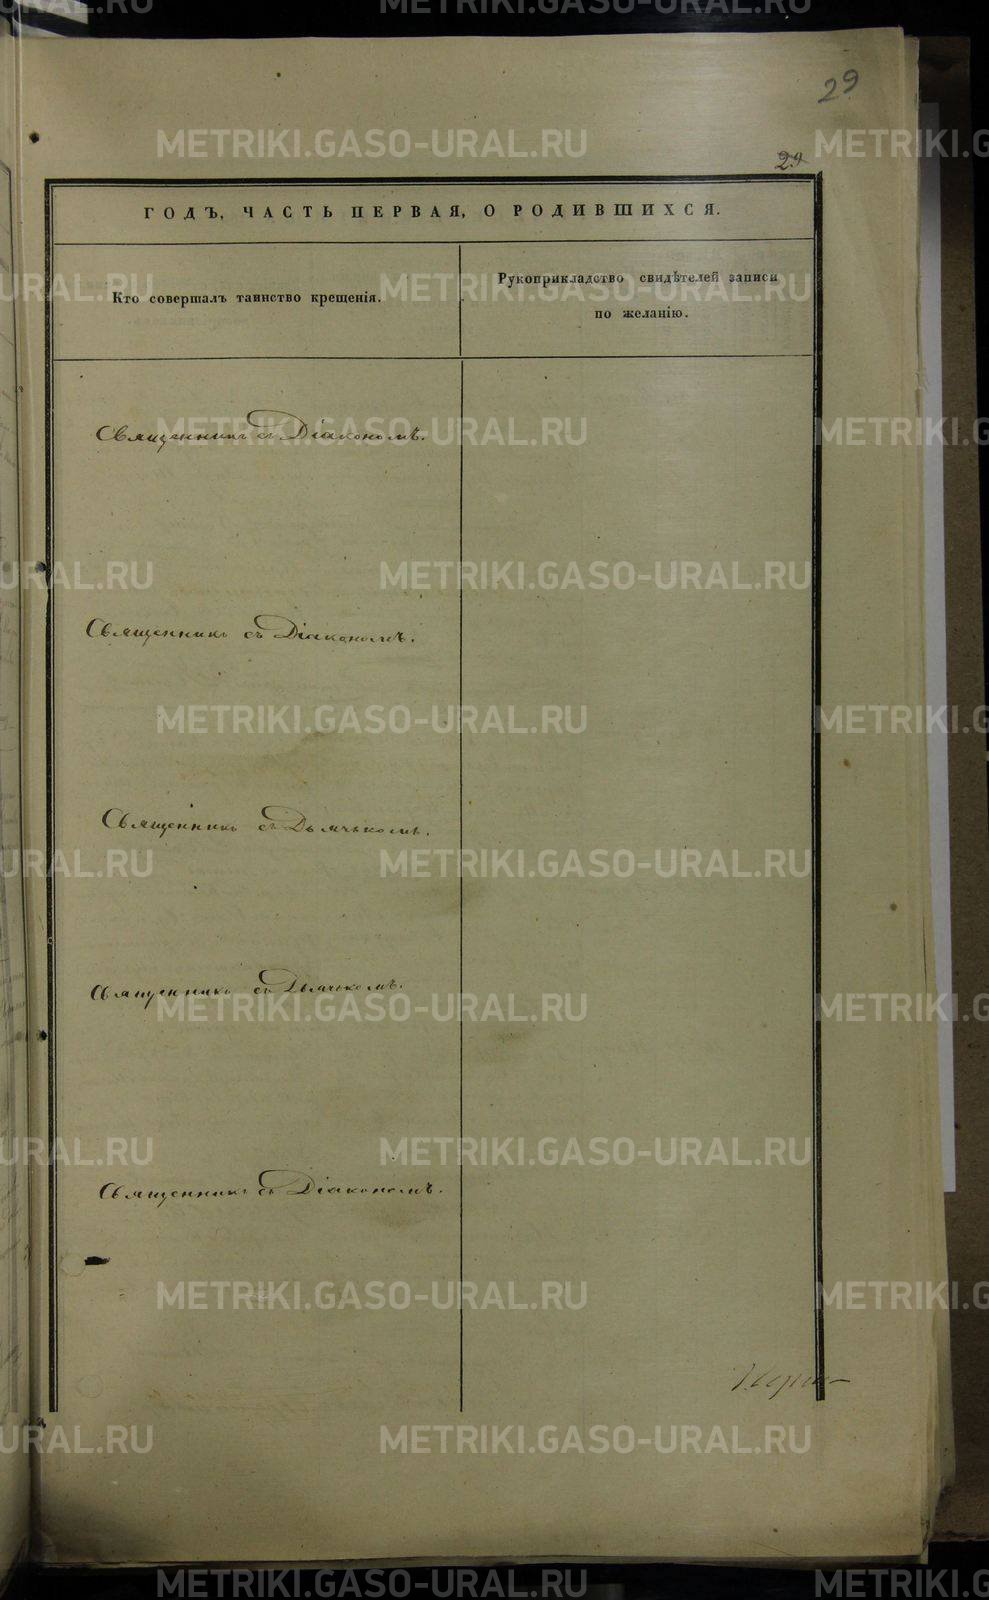 29
29
ГОДЪ, ЧАСТЬ ПЕРВАЯ, О РОДИВШИХСЯ.
Кто совершалъ таинство крещенія.
Рукоприкладство свидѣтелей записи
по желанію.
Священникъ съ Діакономъ.
Священникъ съ Діакономъ.
Священникъ съ Дьячькомъ.
Священникъ съ Дьячькомъ.
Священникъ съ Діакономъ.
METRIKI.GASO-URAL.RU